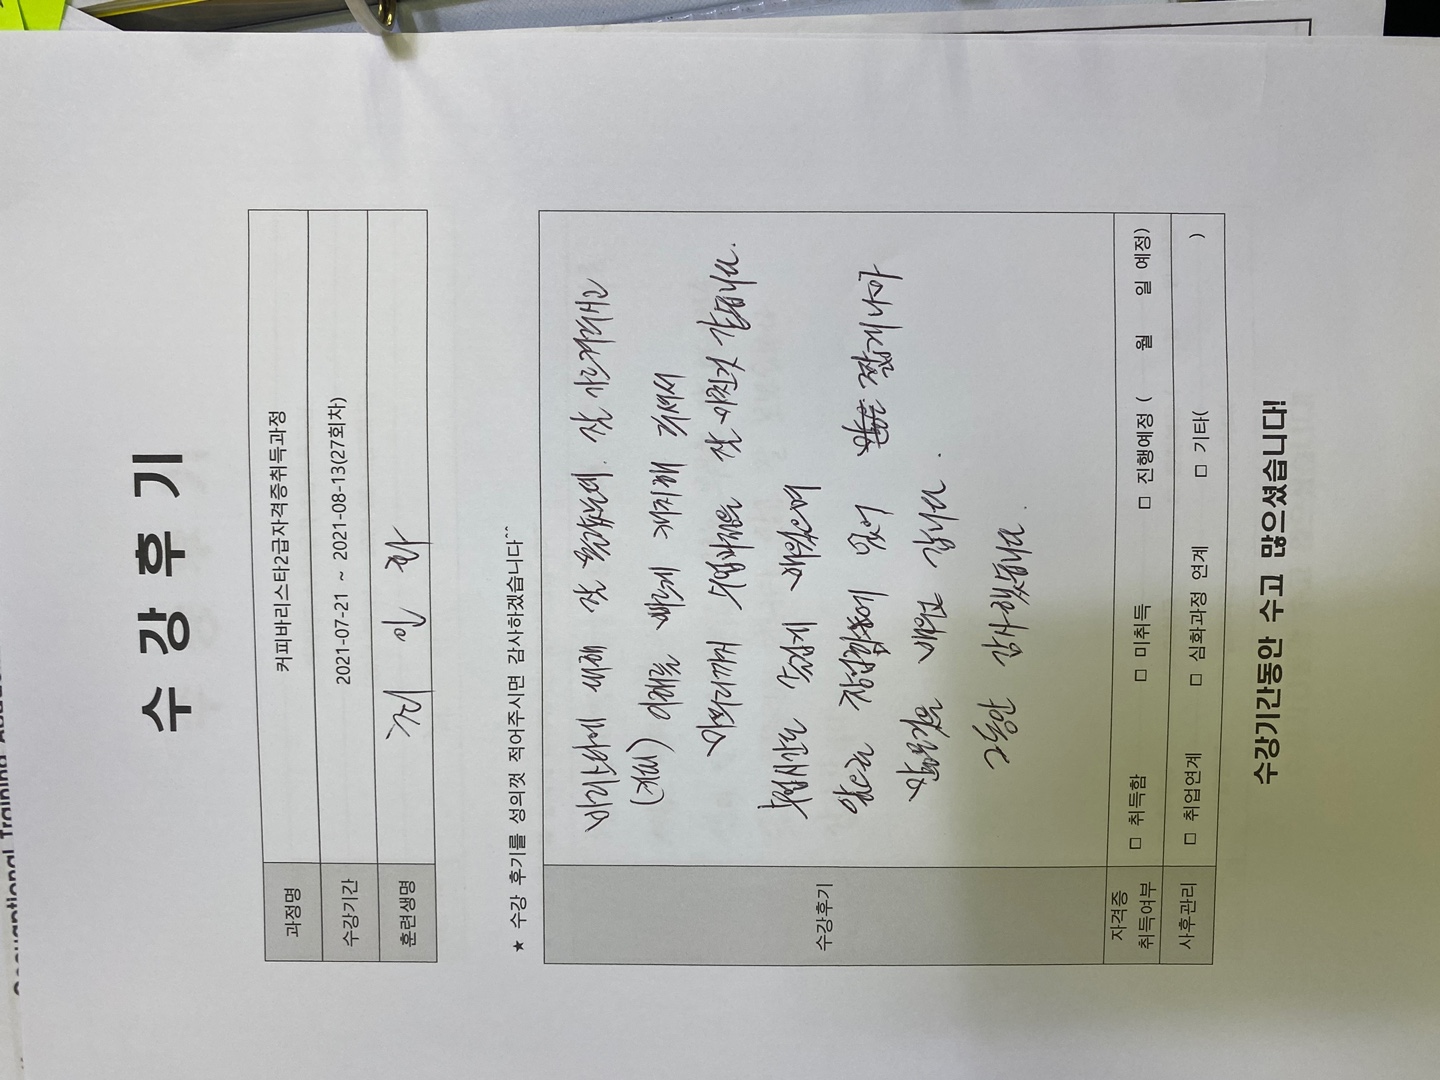 수 강 후 기
과정명 커피바리스타2급자격증취득과정
수강기간 2021-07-21 ~ 2021-08-13(27회차)
훈련생명 인 화
★ 수강 후기를 성의껏 적어주시면 감사하겠습니다^^
수강후기
바리스타에 대해 잘 몰랐는데. 잘 가르쳐주시고
(저희) 이해도 빠르게 캐치해 주셔서
마지막까지 수업내용을 잘 이해한것 같습니다.
수업시간도 즐겁게 배웠으며
앞으로 창업활동에 있어 쫌더 나아
갈것을 배우고 갑니다.
그동안 감사했습니다.
자격증 취득여부 □ 취득함 □ 미취득 □ 진행예정 ( 월 일 예정)
사후관리 □ 취업연계 □ 심화과정 연계 □ 기타( )
수강기간동안 수고 많으셨습니다!